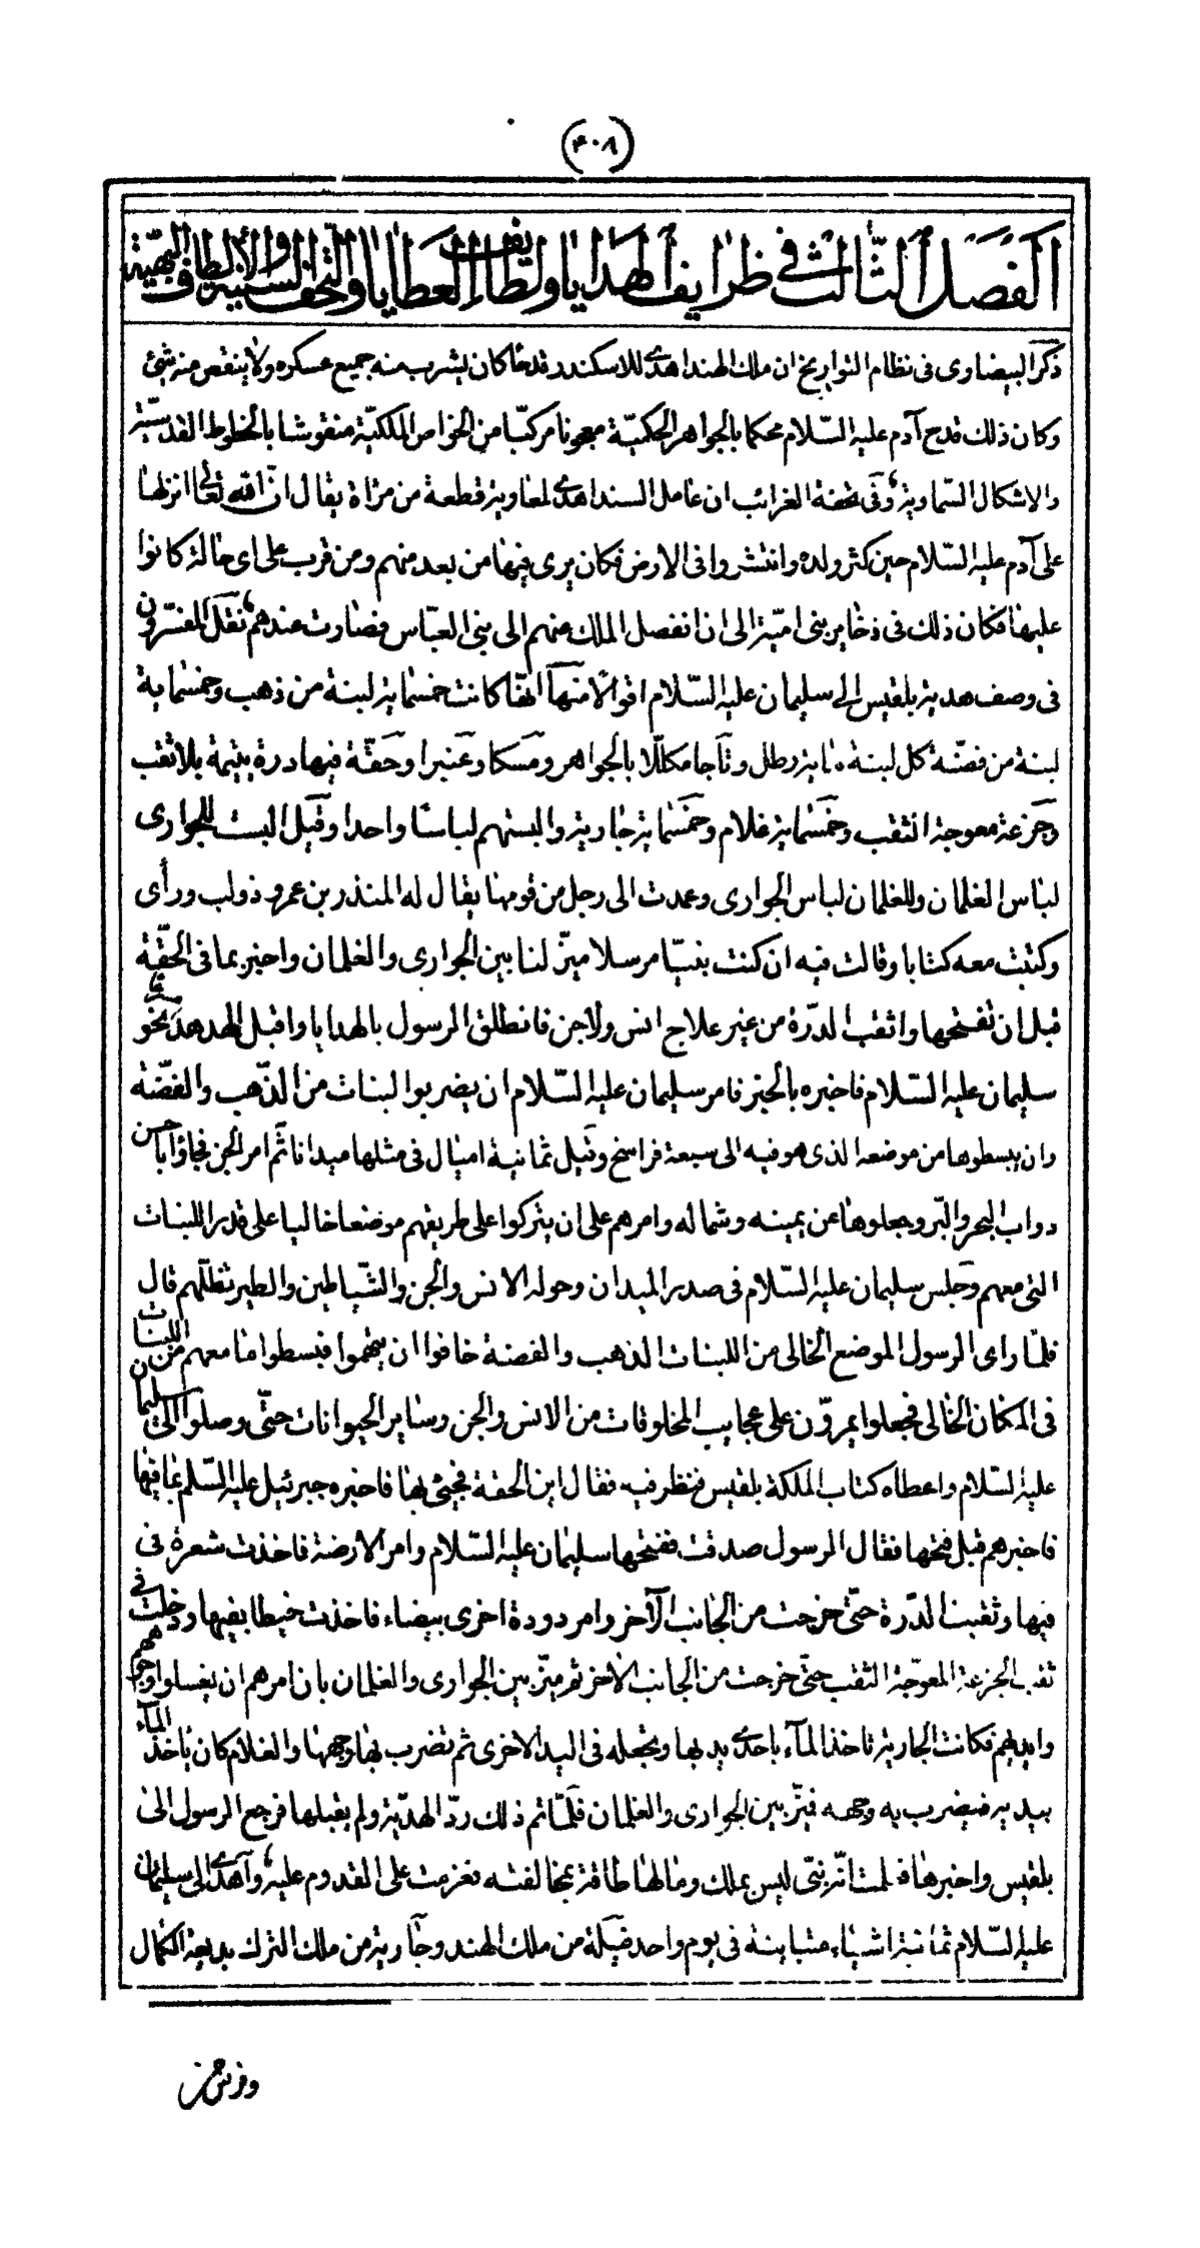 (۴۰۸)
الفصل الثالث فى ظرايف الهدايا ولطايف العطايا والتحف السنية والالطاف البهية
ذكر البيضاوى فى نظام التواريخ ان ملك الهند اهدى للاسكندر قدحا كان يشرب منه جميع عسكره ولا ينقص منه شئ
وكان ذلك قدح آدم عليه السّلام محكما بالجواهر الحكميّة معجونا مركبّا من الخواص الملكيّة منقوشا بالخطوط القدسيّة
والاشكال السّماوية وفى تحفة الغرائب ان عامل السند اهدى لمعاوية قطعة من مرآة يقال انّ الله تعالى انزلها
على آدم عليه السّلام حين كثر ولده وانتشروا فى الارض فكان يرى فيها من بعد منهم ومن قرب على اى حالة كانوا
عليها فكان ذلك فى ذخاير بنى اميّة الى ان انفصل الملك منهم الى بنى العبّاس فصارت عندهم نقل المفسّرون
فى وصف هدية بلقيس الى سليمان عليه السّلام اقوالا منها انّها كانت خمسماية لبنة من ذهب وخمسماية
لبنة من فضّة كل لبنة ماية رطل وتاجا مكلّلا بالجواهر ومسكا وعنبرا وحقّة فيها درة يتيمة بلا ثقب
وجزعة معوجة الثقب وخمسماية غلام وخمسماية جارية والبستهم لباسا واحدا وقيل البست للجوارى
لباس الغلمان وللغلمان لباس الجوارى وعمدت الى رجل من قومها يقال له المنذر بن عمرو ذو لب ورأى
وكتبت معه كتابا وقالت فيه ان كنت بنبيّا مرسلا ميّز لنا بين الجوارى والغلمان واخبر بما فى الحقّة
قبل ان تفتحها واثقب الدّرة من غير علاج انس ولا جن فانطلق الرسول بالهدايا واقبل الهدهد نحو
سليمان عليه السّلام فاخبره بالخبر فامر سليمان عليه السّلام ان يضربوا لبنات من الذّهب والفضّة
وان يبسطوها من موضعه الذى هو فيه الى سبعة فراسخ وقيل ثمانية اميال فى مثلها ميدانا ثم امر الجن فجاؤا باحسن
دواب البحر والبّر وجعلوها عن يمينه وشماله وامرهم على ان يتركوا على طريقهم موضعا خاليا على قدر اللبنات
التى معهم وجلس سليمان عليه السّلام فى صدر الميدان وحوله الانس والجن والشّياطين والطير تظلّهم قال
فلمّا راى الرسول الموضع الخالى من اللبنات الذهب والفضة خافوا ان يتهموا فبسطوا ما معهم من اللبنات
فى المكان الخالى فجعلوا يمرّون على عجايب المخلوقات من الانس والجن وساير الحيوانات حتّى وصلوا الى سليمان
عليه السّلام واعطاه كتاب الملكة بلقيس فنظر فيه فقال اين الحقة فجئ بها فاخبره جبرئيل عليه السّلم بما فيها
فاخبرهم قبل فتحها فقال الرسول صدقت ففتحها سليمان عليه السّلام وامر الارضة فاخذت شعرة فى
فيها وثقبت الدّرة حتّى خرجت من الجانب الآخر وامر دودة اخرى بيضاء فاخذت خيطا بفيها ودخلت فى
ثقب الجزعة المعوجّة الثقب حتّى خرجت من الجانب الآخر ثم ميّز بين الجوارى والغلمان بان امرهم ان يغسلوا وجوههم
وايديهم فكانت الجارية تاخذ المآء باحدى يديها وتجعله فى اليد الاخرى ثم تضرب بها وجهها والغلام كان يأخذ المآء
بيديه فيضرب به وجهه فيّز بين الجوارى والغلمان فلمّا تم ذلك ردّ الهديّة ولم يقبلها فرجع الرسول الى
بلقيس واخبرها فعلمت انّه نبّى ليس بملك وما لها طاقة بمخالفته فعزمت على القدوم عليه وآهدى الى سليمان
عليه السّلام ثمانية اشياء متباينة فى يوم واحد فيلة من ملك الهند وجارية من ملك الترك بديعة الكمال
وفرس من